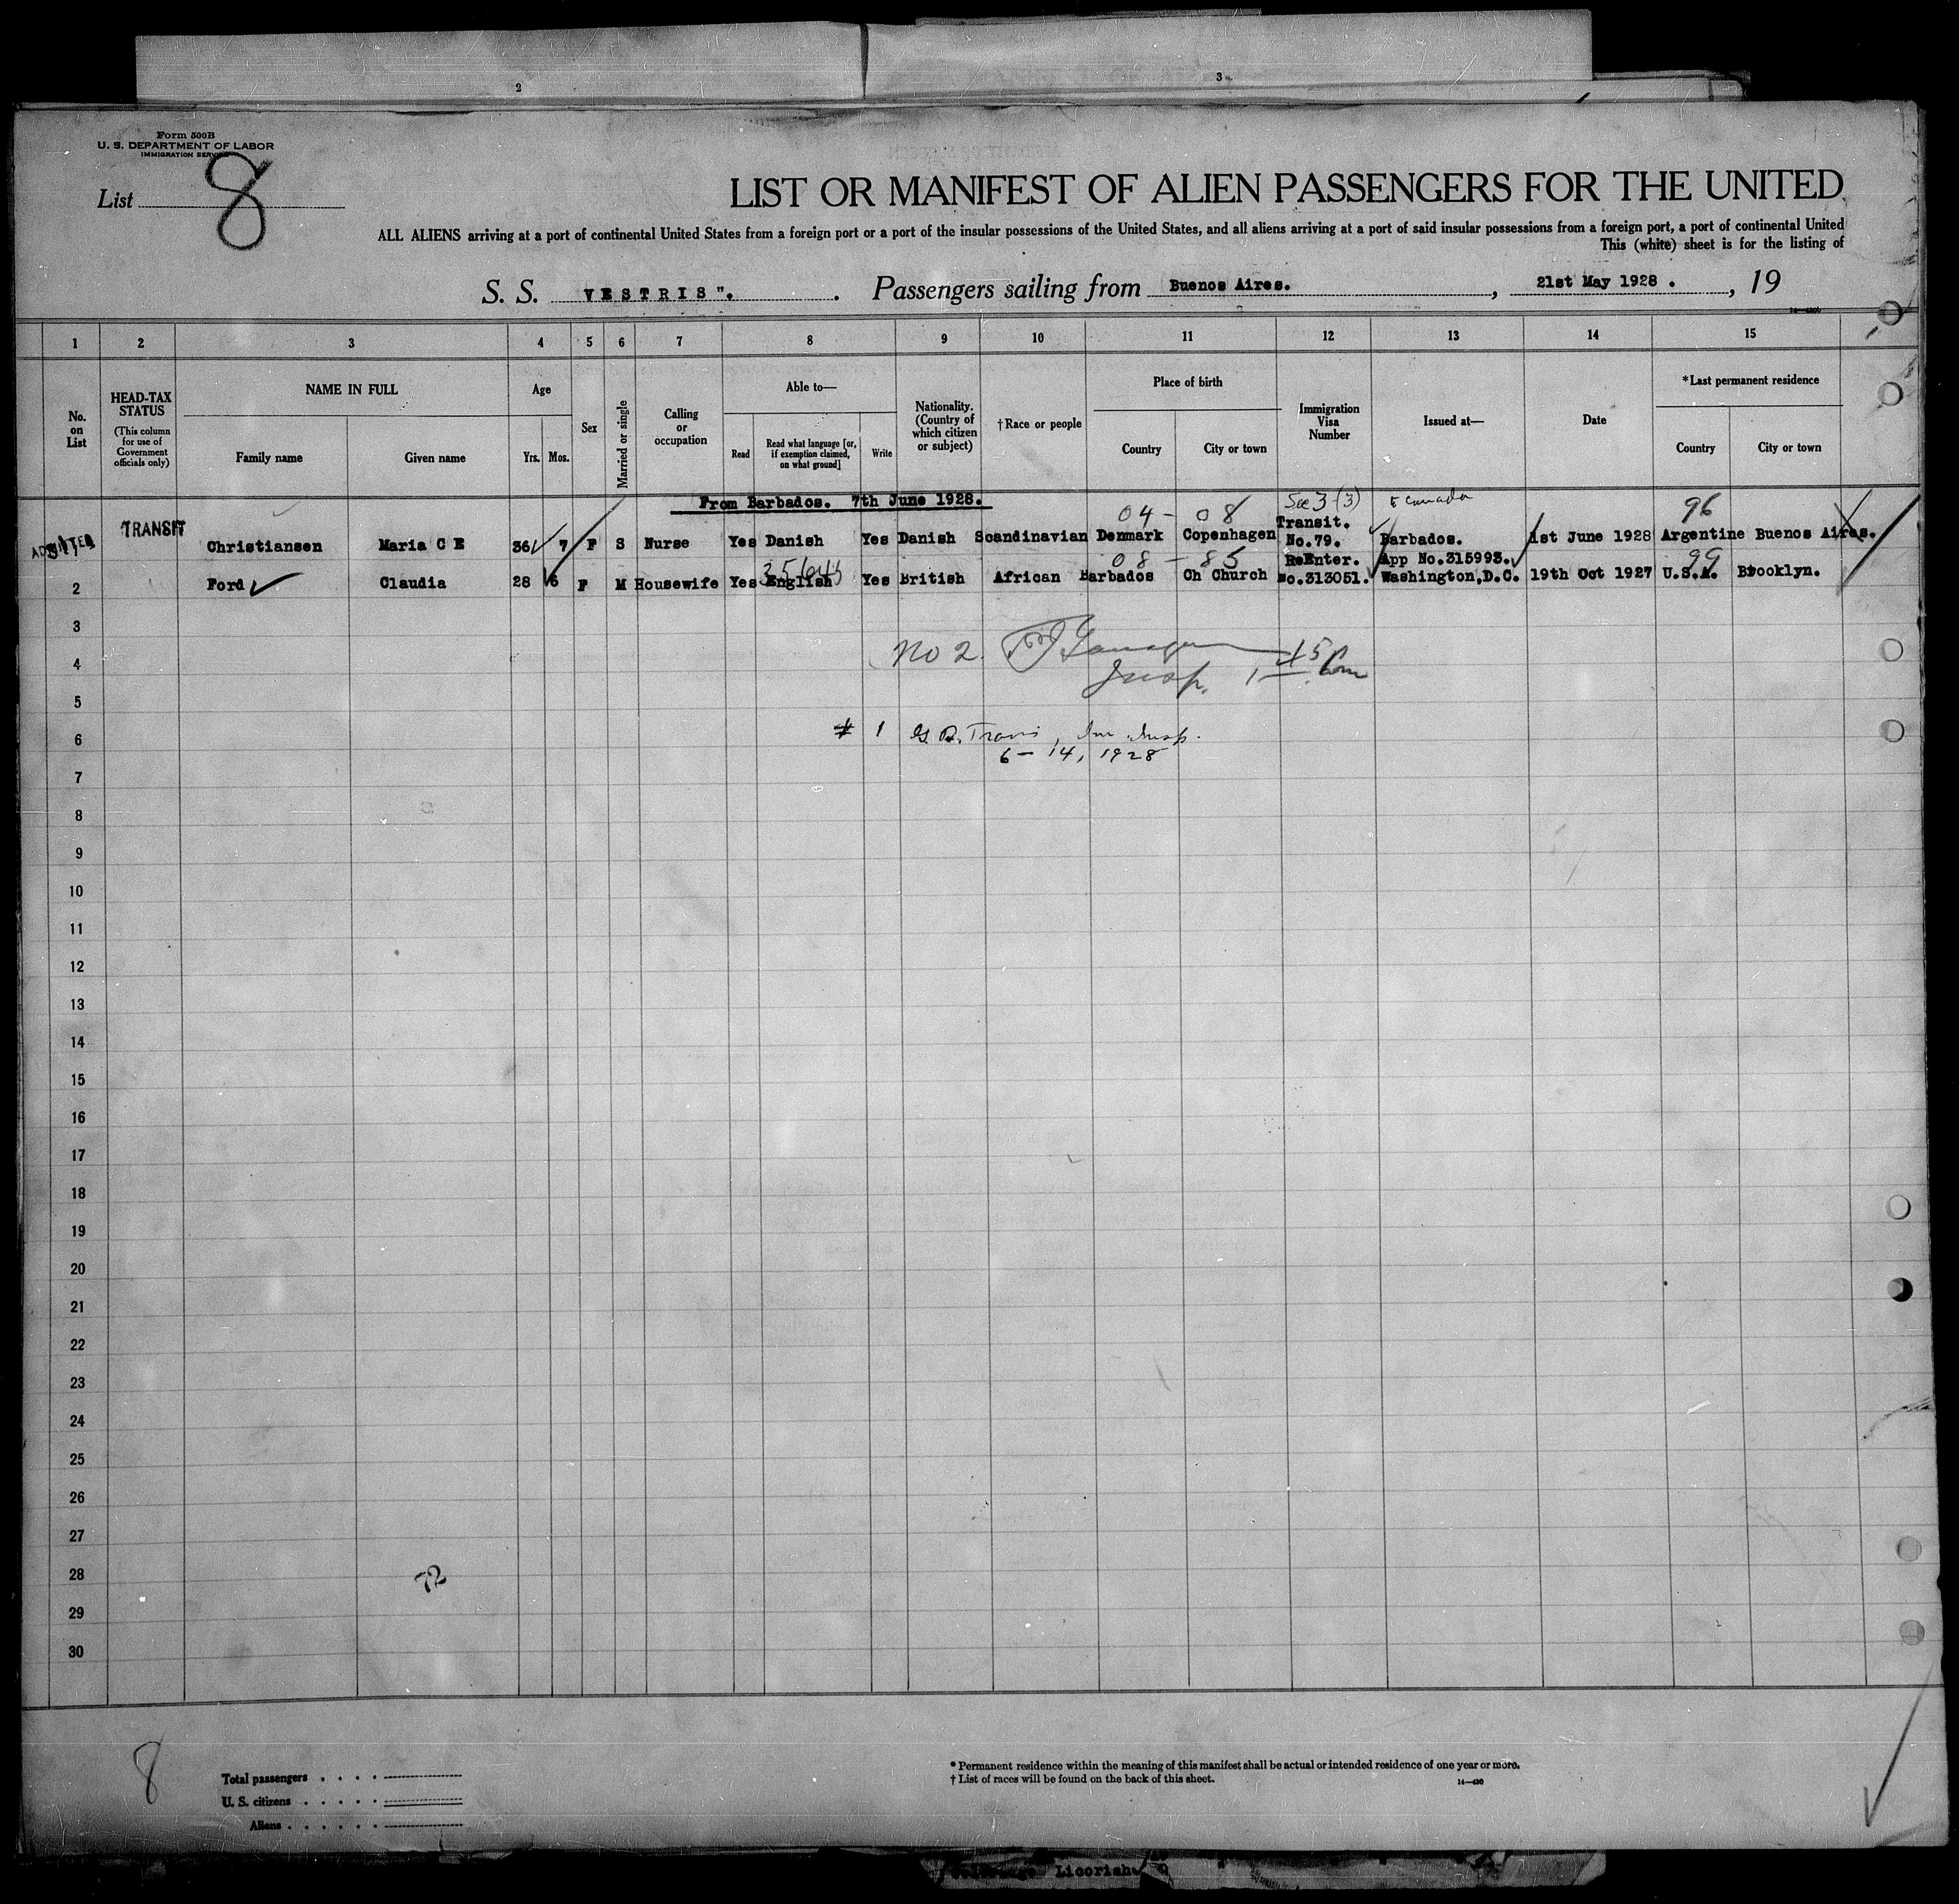 2
3
Form 500B
U. S. DEPARTMENT OF LABOR
IMMIGRATION SERVICE
List 8
LIST OR MANIFEST OF ALIEN PASSENGERS FOR THE UNITED
ALL ALIENS arriving at a port of continental United States from a foreign port or a port of the insular possessions of the United States, and all aliens arriving at a port of said insular possessions from a foreign port, a port of continental United
This (white) sheet is for the listing of
S. S. VESTRIS". Passengers sailing from Buenos Aires. , 21st May 1928 . , 19
1 2 3 4 5 6 7 8 9 10 11 12 13 14 15
No. on List
HEAD-TAX STATUS
(This column for use of Government officials only)
NAME IN FULL
Family name
Given name
Age
Yrs.
Mos.
Sex
Married or single
Calling or occupation
Able to—
Read
Read what language [or, if exemption claimed, on what ground]
Write
Nationality. (Country of which citizen or subject)
†Race or people
Place of birth
Country
City or town
Immigration Visa Number
Issued at—
Date
*Last permanent residence
Country
City or town
From Barbados. 7th June 1928.
Sec 3 (3)
04 - 08
96
ADMITTED TRANSIT Christiansen Maria C E 36 7 F S Nurse Yes Danish Yes Danish Scandinavian Denmark Copenhagen Transit. No.79. Barbados. 1st June 1928 Argentine Buenos Aires.
08 - 85
99
2 Ford Claudia 28 6 F M Housewife Yes English Yes British African Barbados Ch Church ReEnter. No.313051. App No.315993. Washington,D.C. 19th Oct 1927 U.S.A. Brooklyn.
3
No 2.
4
Insp.
5
6
# 1 G. R. Travis, Im Insp.
6-14, 1928
7
8
9
10
11
12
13
14
15
16
17
18
19
20
21
22
23
24
25
26
27
28
72
29
30
8
Total passengers . . . .
U. S. citizens . . . . .
Aliens . . . . . .
* Permanent residence within the meaning of this manifest shall be actual or intended residence of one year or more.
† List of races will be found on the back of this sheet.
14—430
Licorish